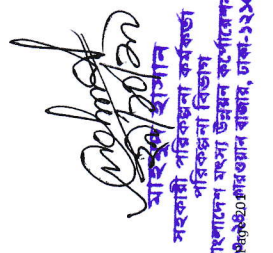 মাহমুদ হাসান
সহকারী পরিকল্পনা কর্মকর্তা
পরিকল্পনা বিভাগ
বাংলাদেশ মৎস্য উন্নয়ন কর্পোরেশন
কারওয়ান বাজার, ঢাকা-১২১
Page 201